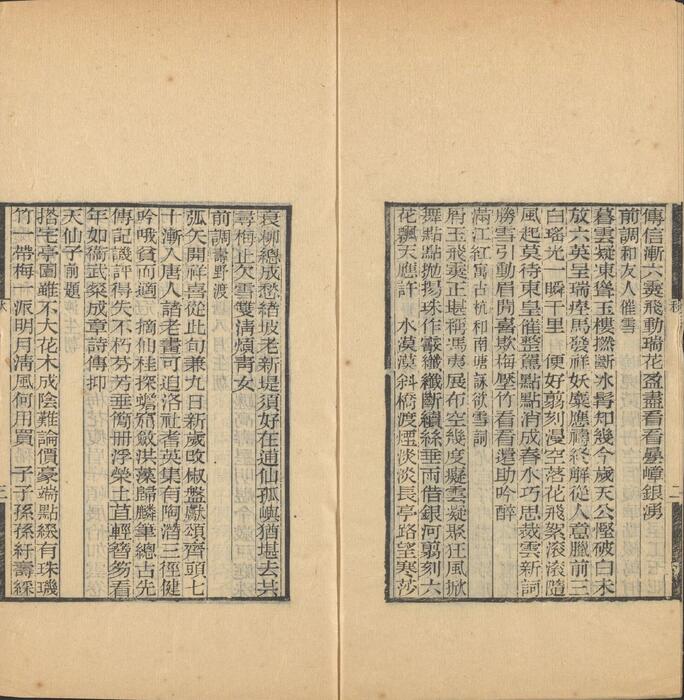 傳信漸六霙飛動瑞花盈盡看看疊嶂銀湧
前調和友人催雪
暮雲疑東聳玉樓撚斷冰髯知幾今歲天公慳破白未
放六英呈瑞痺馬發祥妖麋應禱終解從人意臘前三
白瑤光一瞬千里　便好剪刻漫空落花飛絮滾滾隨
風起莫待東皇催整駕點點消成春水巧思裁雲新詞
勝雪引動眉開喜欺梅壓竹看看還助吟醉
滿江紅寓古杭和南塘詠欲雪詞
屑玉飛霙正堪稱馮夷展布空幾度癡雲凝聚狂風掀
舞點點拋揚珠作糝纖纖斷續絲垂雨借銀河剪刻六
花飄天應許　水漠漠斜橋渡煙淡淡長亭路望寒莎
衰柳總成愁緒坡老新堤須好在逋仙孤嶼猶堪去共
尋梅止欠雪雙清煩青女
前調壽野渡
弧矢開祥喜從此旬兼九日新歲改椒盤獻頌齊頭七
十漸入唐人諸老畫可追洛社耆英集有陶潛三徑健
吟哦貧而適　摘仙桂探蟾窟斂洪藻歸麟筆總古先
傳記議評得失不朽芬芳垂簡冊浮榮土苴輕簪笏看
年如衞武粲成章詩傳抑
天仙子前題
搭宅亭園雖不大花木成陰難論價豪端點綴有珠璣
竹一帶梅一派明月清風何用買　子子孫孫紆壽綵